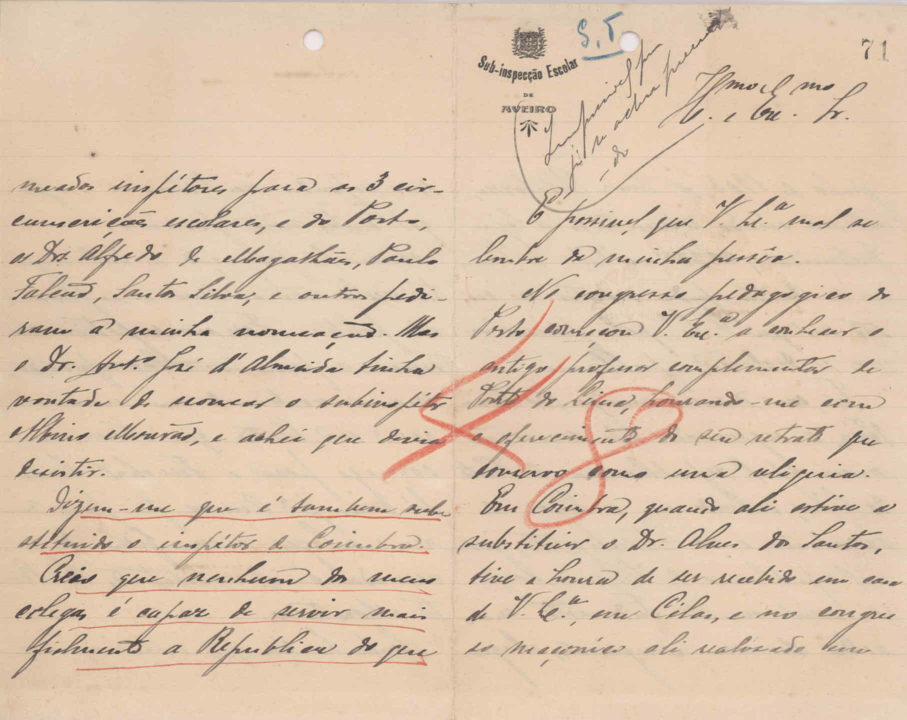 S.T
71
Sub-inspecção Escolar
DE
AVEIRO
Impossivel por
já se achar preenchi-
-do
Ilmo. e Exmo. Sr.
É possivel que V. Ex.ª mal se
lembre da minha pessôa.
No congresso pedagogico do
Porto começou V. Ex.ª a conhecer o
antigo professor complementar de
Ponte do Lima, honrando-me com
o oferecimento do seu retrato que
conservo como uma reliquia.
Em Coimbra, quando ali estive a
substituir o Dr. Alves dos Santos,
tive a honra de ser recebido em casa
de V. Ex.ª, em Celas, e no congres
so maçonico ali realisado em
meados inspétores para as 3 cir-
cunscrições escolares, e do Porto,
os Drs. Alfredo de Magalhães, Paulo
Falcão, Santos Silva, e outros pedi-
ram a minha nomeação. Mas
o Dr. Antº. José d'Almeida tinha
vontade de nomear o subinspétor
Albino Mourão, e achei que devia
desistir.
Dizem-me que é tambem subs
tituido o inspétor de Coimbra.
Creio que nenhum dos meus
colegas é capaz de servir mais
fielmente a Republica do que
48